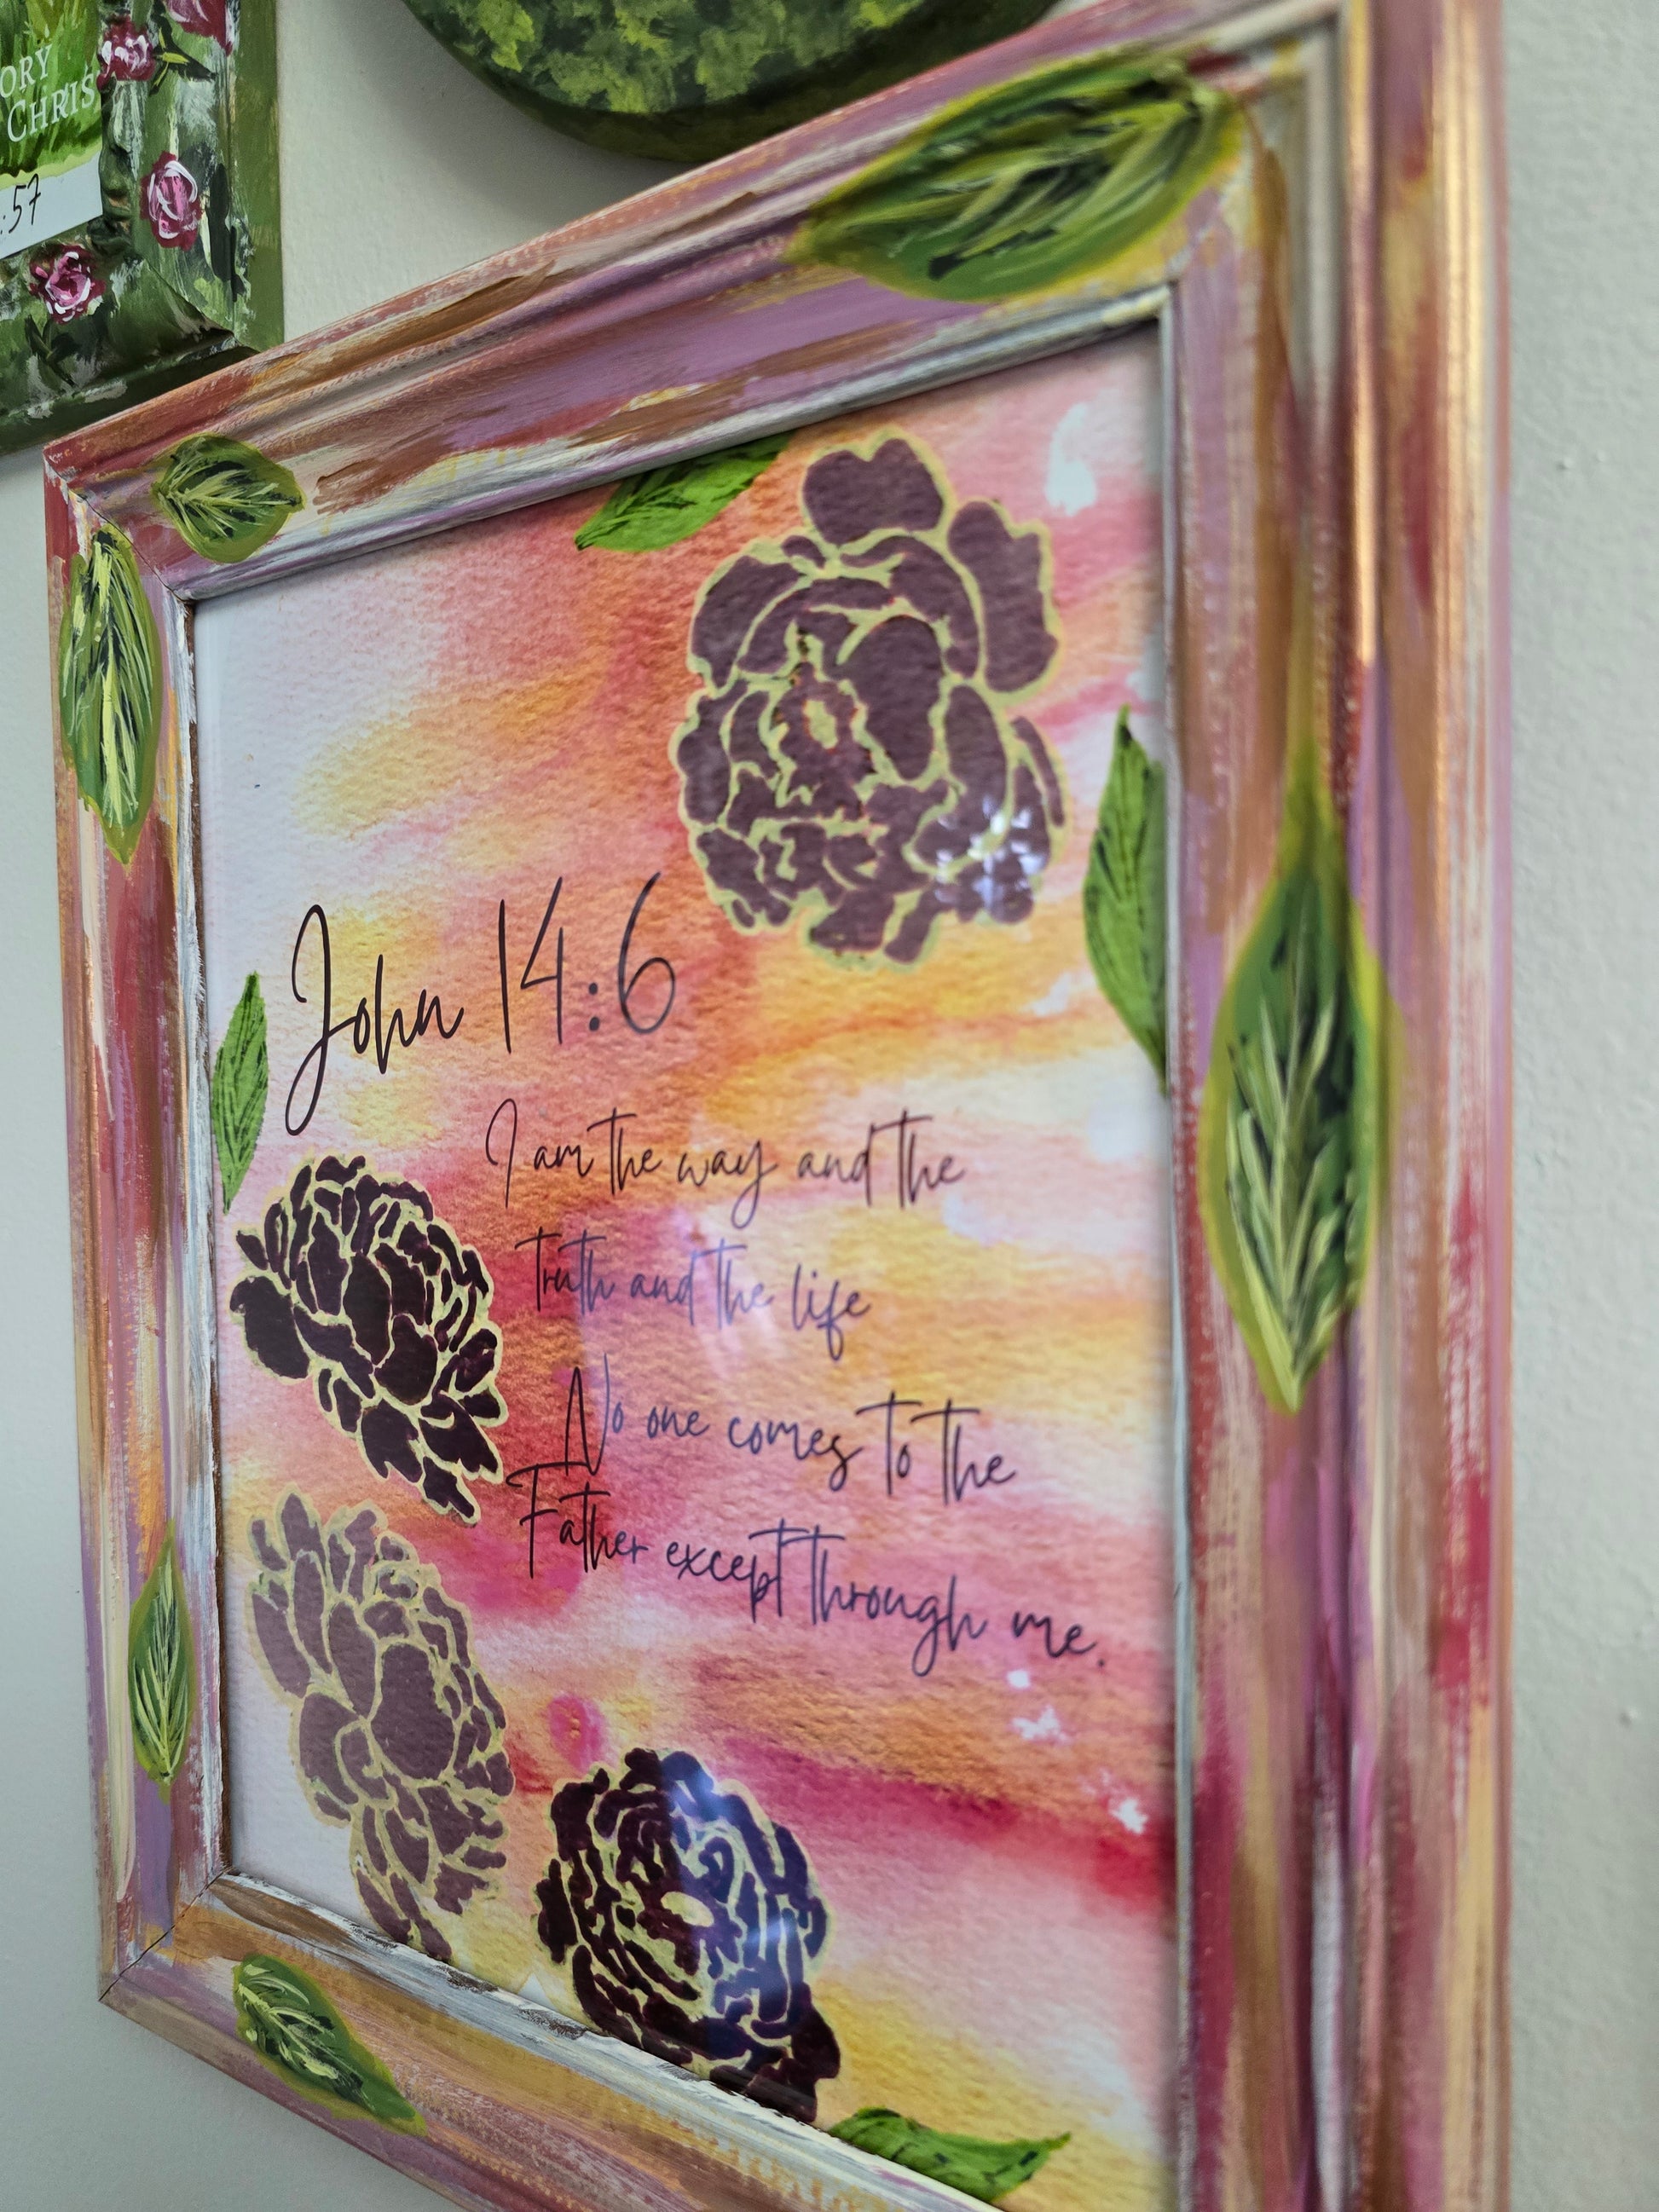 ORY
CHRIS
:57
John 14:6
I am the way and the
truth and the life
No one comes to the
Father except through me.